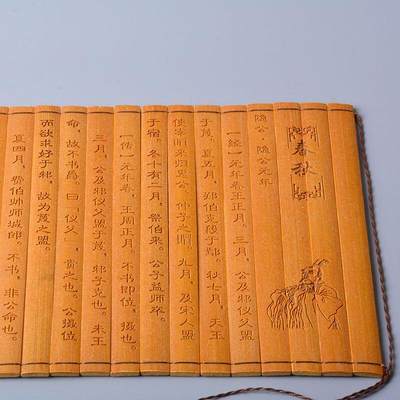 春秋
隐公·隐公元年
【经】元年春王正月。三月,公及邾仪父盟
于蔑。夏五月,郑伯克段于鄢。秋七月,天王
使宰咺来归惠公、仲子之赗。九月,及宋人盟
于宿。冬十有二月,祭伯来。公子益师卒。
【传】元年春,王周正月。不书即位,摄也。
三月,公及邾仪父盟于蔑,邾子克也。未王
命,故不书爵。曰“仪父”,贵之也。公摄位
而欲求好于邾,故为蔑之盟。
夏四月,费伯帅师城郎。不书,非公命也。